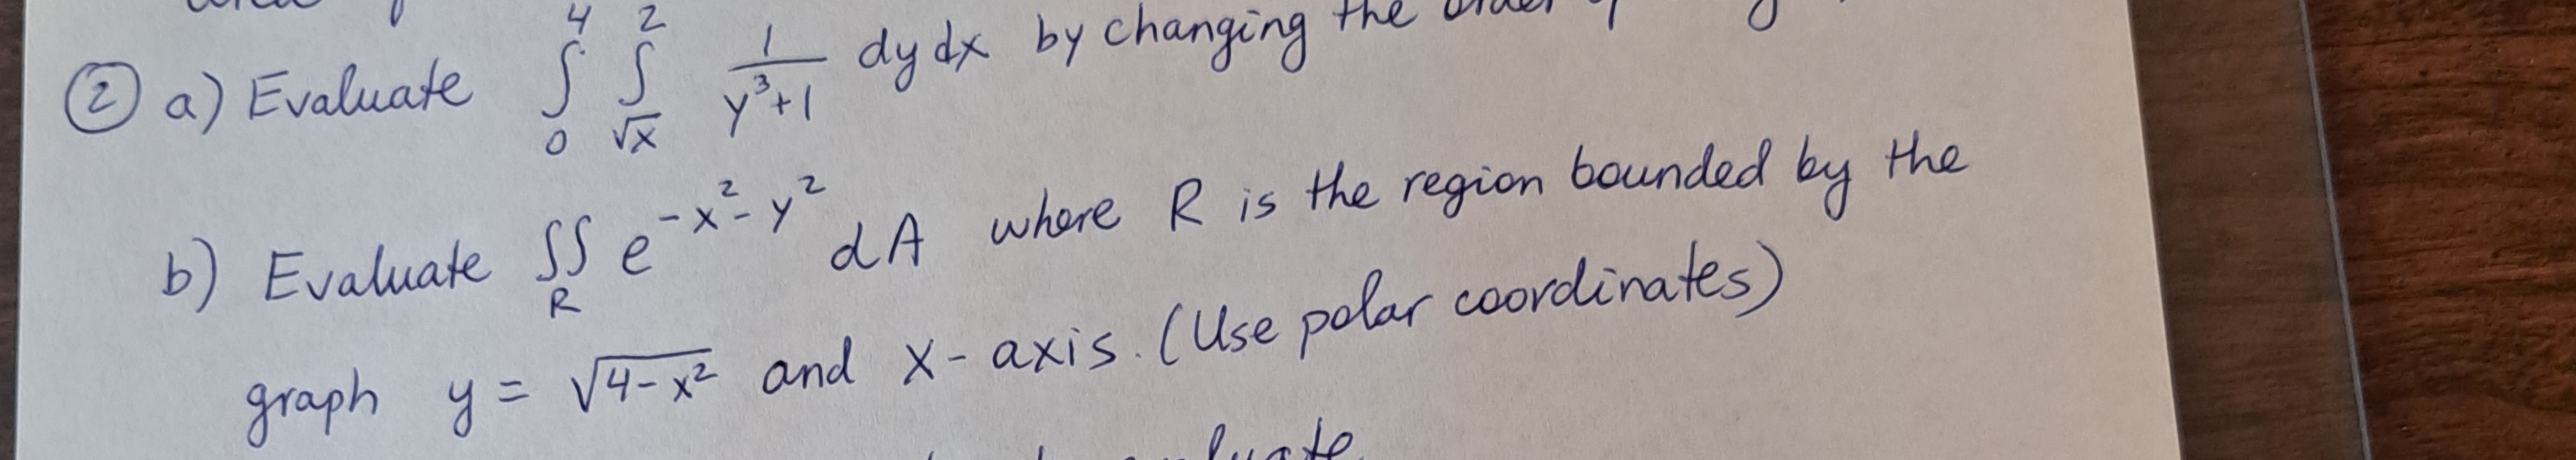 ② a) Evaluate ∫₀⁴ ∫_√x² 1/(y³+1) dy dx by changing the
b) Evaluate ∬_R e^(-x²-y²) dA where R is the region bounded by the
graph y = √(4-x²) and x-axis. (Use polar coordinates)